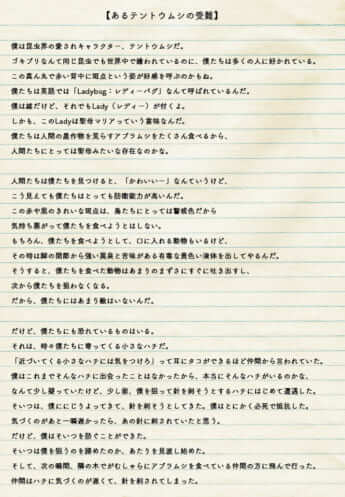 【あるテントウムシの受難】
僕は昆虫界の愛されキャラクター、テントウムシだ。
ゴキブリなんて同じ昆虫でも世界中で嫌われているのに、僕たちは多くの人に好かれている。
この真ん丸で赤い背中に斑点という姿が好感を呼ぶのかもね。
僕たちは英語では「Ladybug：レディーバグ」なんて呼ばれているんだ。
僕は雄だけど、それでもLady（レディー）が付くよ。
しかも、このLadyは聖母マリアっていう意味なんだ。
僕たちは人間の農作物を荒らすアブラムシをたくさん食べるから、
人間たちにとっては聖母みたいな存在なのかな。
人間たちは僕たちを見つけると、「かわいいー」なんていうけど、
こう見えても僕たちはとっても防衛能力が高いんだ。
この赤や黒のきれいな斑点は、鳥たちにとっては警戒色だから
気持ち悪がって僕たちを食べようとはしない。
もちろん、僕たちを食べようとして、口に入れる動物もいるけど、
その時は脚の関節から強い異臭と苦味がある有毒な黄色い液体を出してやるんだ。
そうすると、僕たちを食べた動物はあまりのまずさにすぐに吐き出すし、
次から僕たちを狙わなくなる。
だから、僕たちにはあまり敵はいないんだ。
だけど、僕たちにも恐れているものはいる。
それは、時々僕たちに寄ってくる小さなハチだ。
「近づいてくる小さなハチには気をつけろ」って耳にタコができるほど仲間から言われていた。
僕はこれまでそんなハチに出会ったことはなかったから、本当にそんなハチがいるのかな、
なんて少し疑っていたけど、少し前、僕を狙って針を刺そうとするハチにはじめて遭遇した。
そいつは、僕ににじりよってきて、針を刺そうとしてきた。僕はとにかく必死で抵抗した。
気づくのがあと一瞬遅かったら、あの針に刺されていたと思う。
だけど、僕はそいつを防ぐことができた。
そいつは僕を狙うのを諦めたのか、あたりを見渡し始めた。
そして、次の瞬間、隣の木でがむしゃらにアブラムシを食べている仲間の方に飛んで行った。
仲間はハチに気づくのが遅くて、針を刺されてしまった。